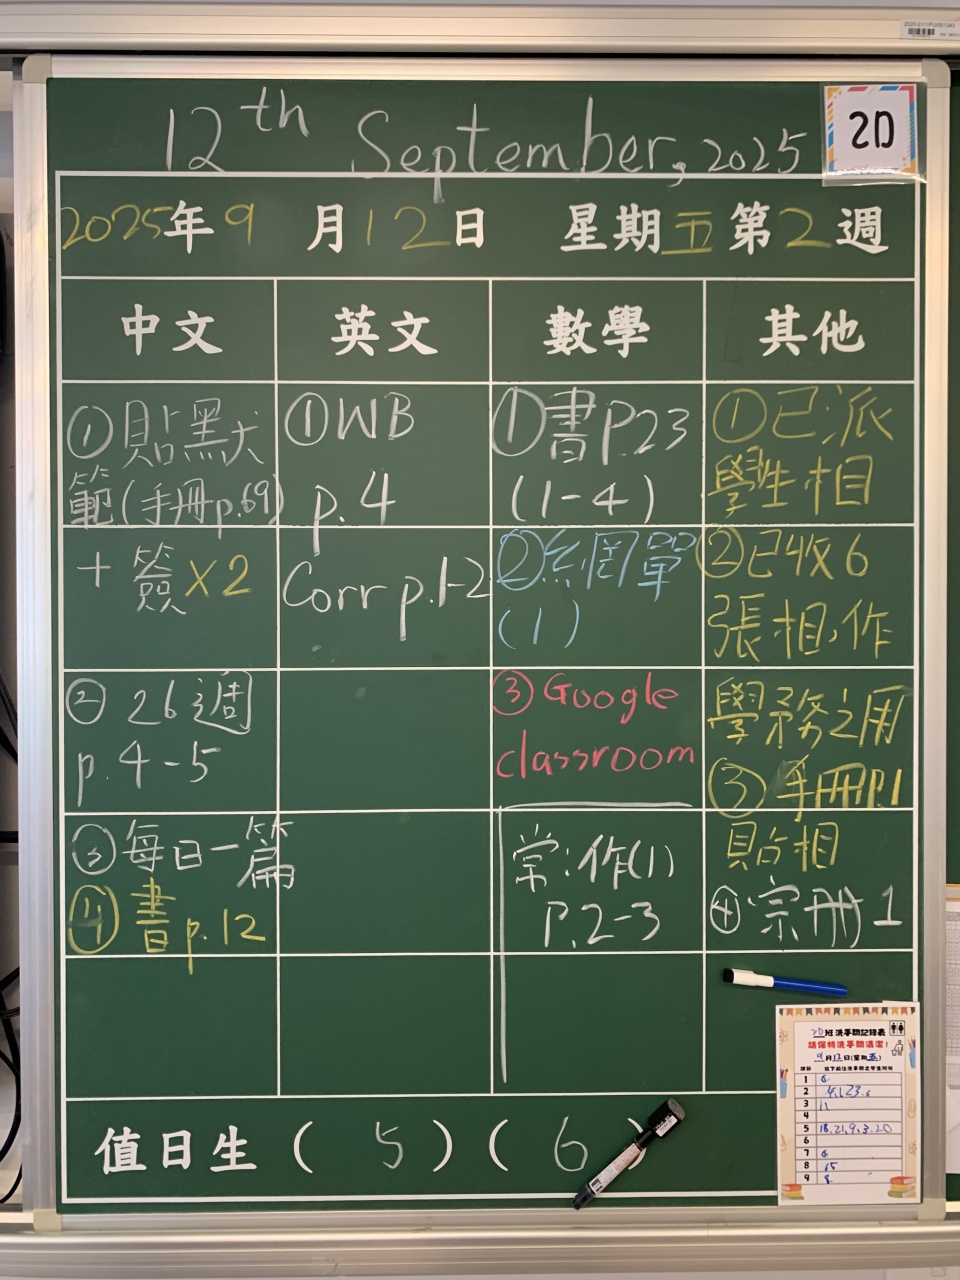 12th September, 2025
2D
2025年9月12日 星期五第2週
中文
英文
數學
其他
①貼默
範(手冊p.69)
+簽x2
② 26週
p.4-5
③每日一篇
④書p.12
①WB
p.4
Corr p.1-2
①書P.23
(1-4)
②網單
(1)
③Google
classroom
常:作(1)
P.2-3
①已派
學生相
②已收6
張相,作
學務之用
③手冊P.1
貼相
④宗冊1
值日生( 5 )( 6
2D班洗手間記錄表
請保持洗手間清潔!
9月12日(星期五)
1 6
2
3 11
4
5 18.21.9.3.20
6
7 6
8 15
9 8